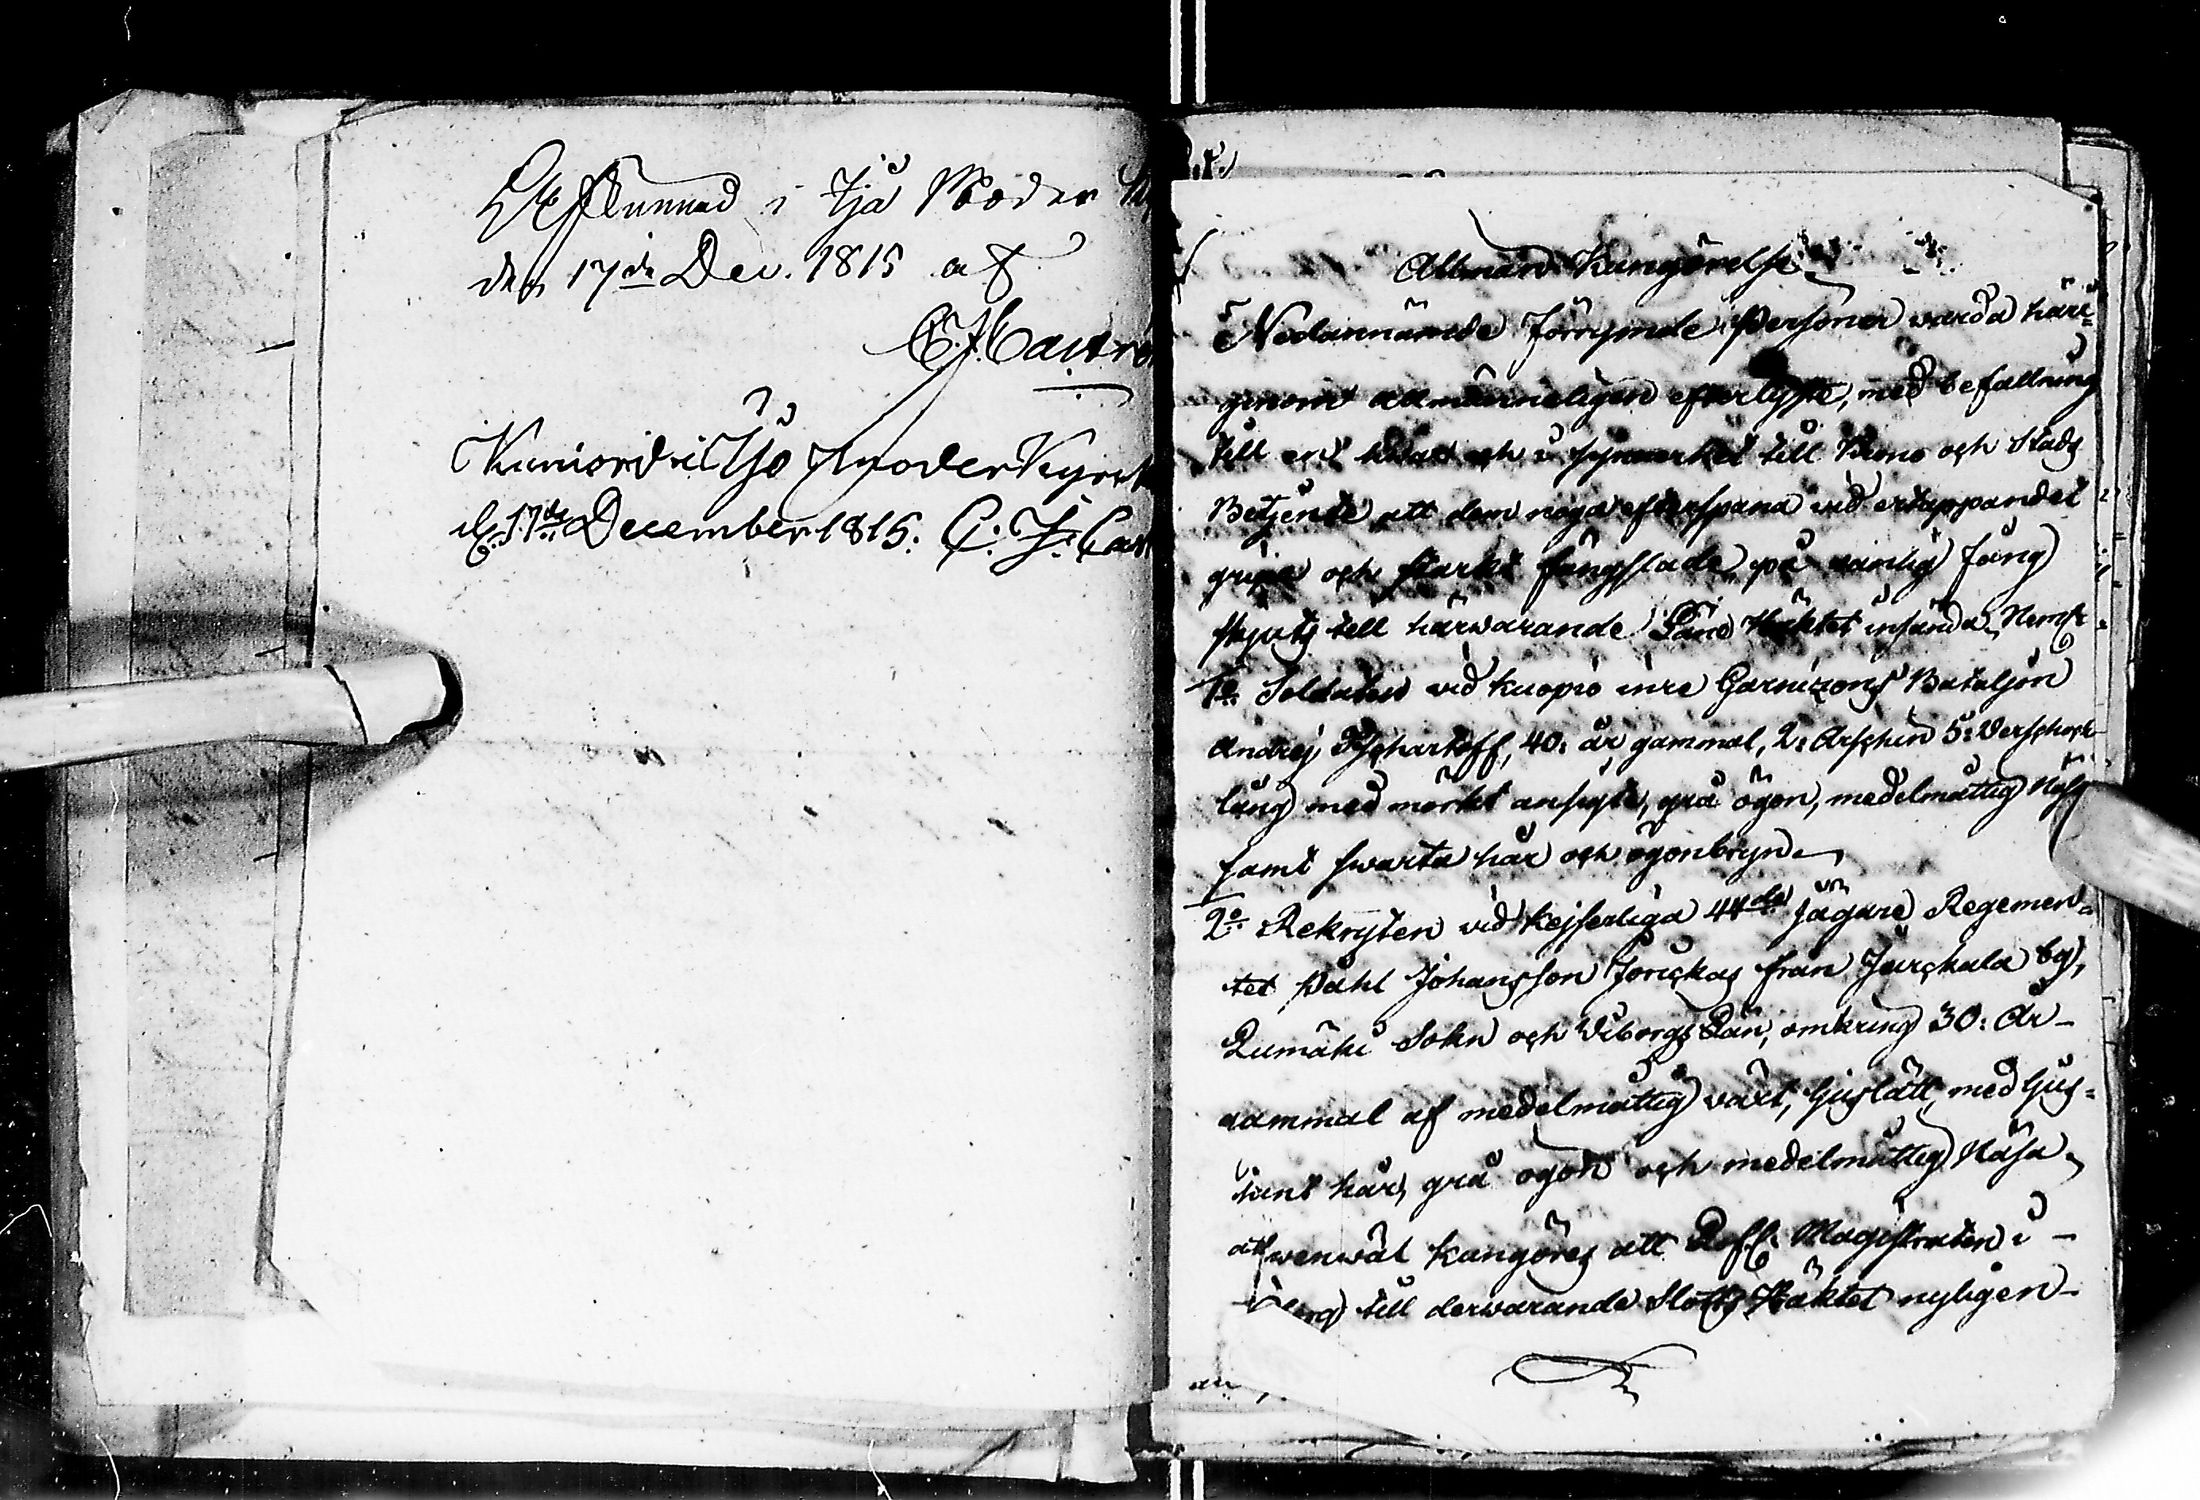 i Ijo Moder
den 17de Dec. 1815 af
C. J. Castré
Kungjord i Ijo Moder Kyrck
d. 17de December 1815. C: J: Cas
Allmän Kungörelse
Nedannämde förrymde Personer warda häri-
genom allmänneligen efterlyste, med befallning
till en hwar och i synnerhet till Krono och Stads
Betjente att dem noga efterspana wid ertappandet
gripa och starkt fängslade på wanlig fång
skjuts till härwarande Läns Häktet insända, Nemf:
1o Soldaten wid Kuopio inre Garnizons Bataljon
Andrej, 40: år gammal, 2: Arschin 5: Verschock
lång med mörkt ansigte, grå ögon, medelmåttig Näsa
samt swarta hår och ögonbryn.
2o Rekryten wid Kejserliga 44de Jägare Regemen-
tet Påhl Johansson från bg,
Sokn och Wiborgs Län, omkring 30: År
gammal af medelmåttig växt, ljuslätt, med ljus-
hår, grå ögon och medelmåttig Näsa,
kungöres att Magistraten i
till derwarande Slotts Häktet nyligen